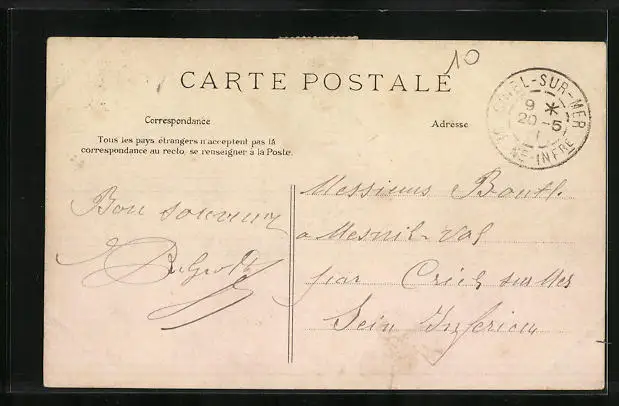 10
CARTE POSTALE
CRIEL-SUR-MER
9 *
20 -5
11
SEINE-INFRE
Correspondance
Adresse
Tous les pays étrangers n'acceptent pas la
correspondance au recto, se renseigner à la Poste.
Bon souvenir
Messieurs
a Mesnil-Val
par Criel sur Mer
Sein Inferieu